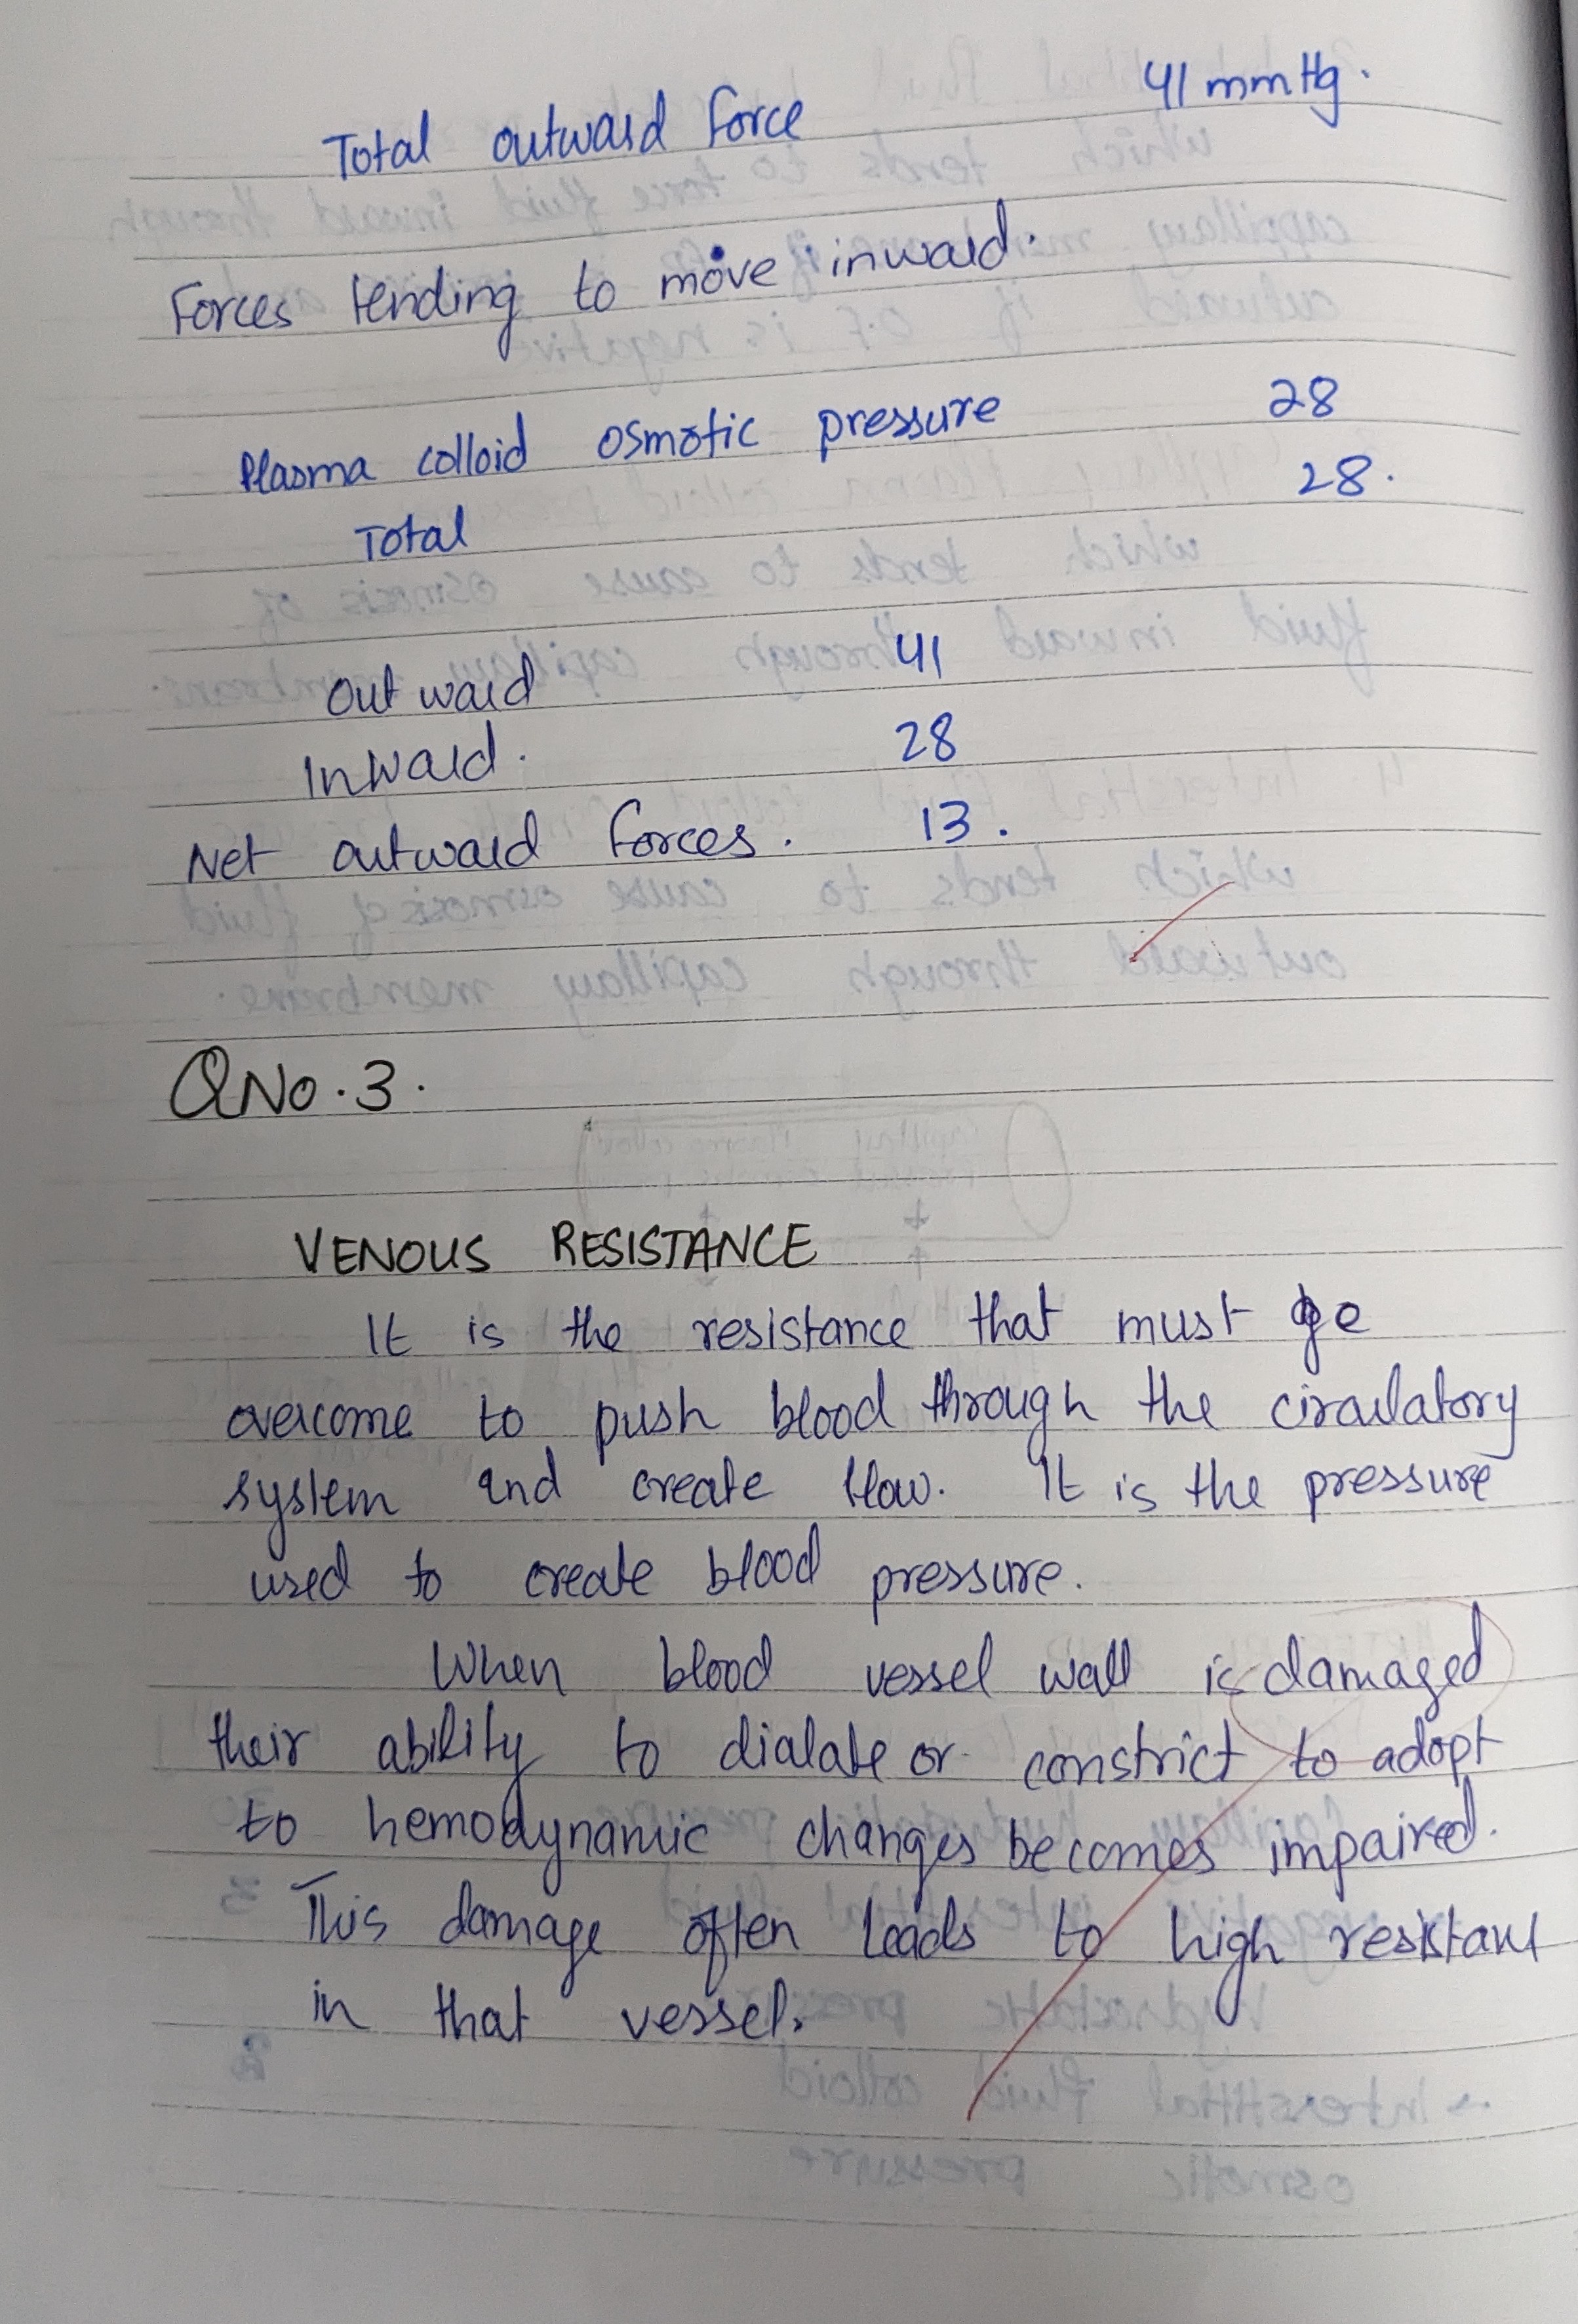 Total outward force 41 mmHg.
Forces tending to move inward.
Plasma colloid osmotic pressure 28
Total 28.
outward 41
Inward. 28
Net outward forces. 13.
QNo.3.
VENOUS RESISTANCE
It is the resistance that must be
overcome to push blood through the circulatory
system and create flow. It is the pressure
used to create blood pressure.
When blood vessel wall is damaged
their ability to dialate or constrict to adopt
to hemodynamic changes becomes impaired.
This damage often leads to high resistant
in that vessel.